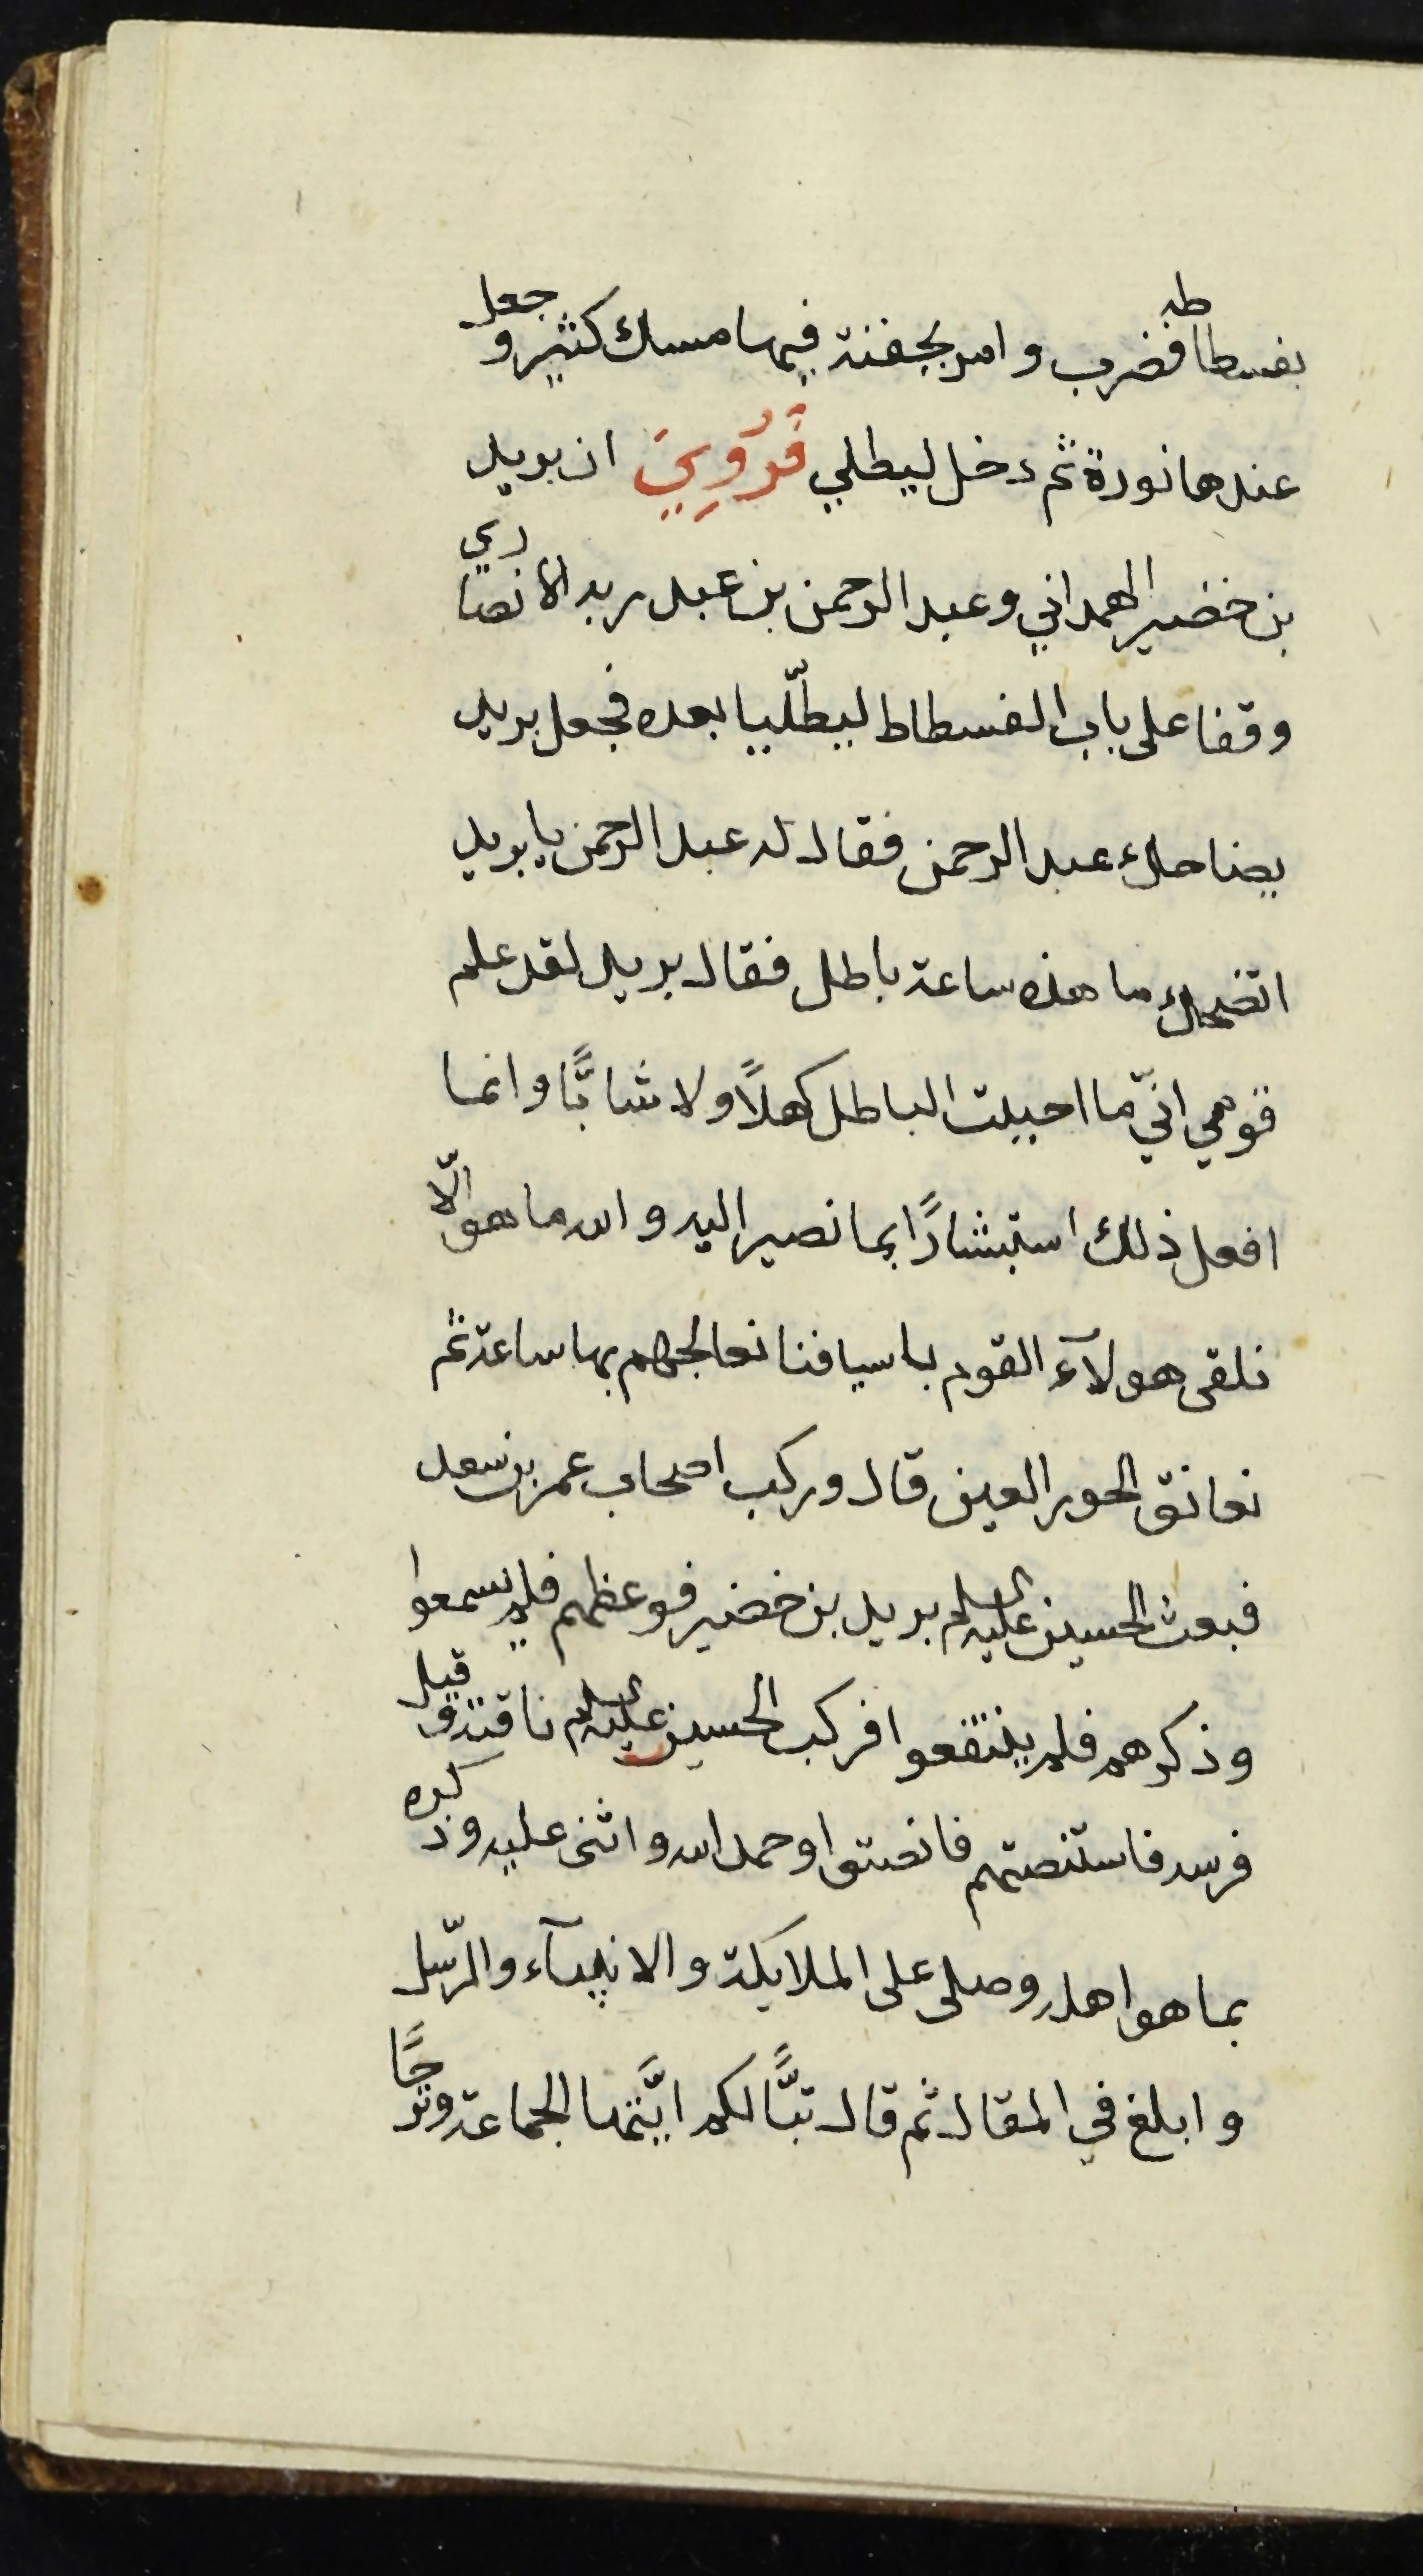 بفسطاطه فضرب وامر بجفنة فيها مسك كثير وجعل
عندها نورة ثم دخل ليطلي فَرُوِيَ ان بريد
بن خضير الهمداني وعبد الرحمن بن عبد ربه الانصاري
وقفا على باب الفسطاط ليطّليا بعده فجعل بريد
يضاحك عبد الرحمن فقال له عبد الرحمن يا بريد
اتضحك ما هذه ساعة باطل فقال بريد لقد علم
قومي انّي ما احببت الباطل كهلاً ولا شابًّا وانما
افعل ذلك استبشارًا بما نصير اليه والله ما هو الّا
نلقى هولآء القوم باسيافنا نعالجهم بها ساعة ثم
نعانق الحور العين قال وركب اصحاب عمر بن سعد
فبعث الحسين عليه السلم بريد بن خضير فوعظهم فلم يسمعوا
وذكرهم فلم ينتفعوا فركب الحسين عليه السلم ناقته وقيل
فرسه فاستنصتهم فانصتوا وحمد الله واثنى عليه وذكره
بما هو اهله وصلى على الملايكة والانبيآء والرّسل
وابلغ في المقال ثم قال تبًّا لكم ايَّتها الجماعة وترحًا